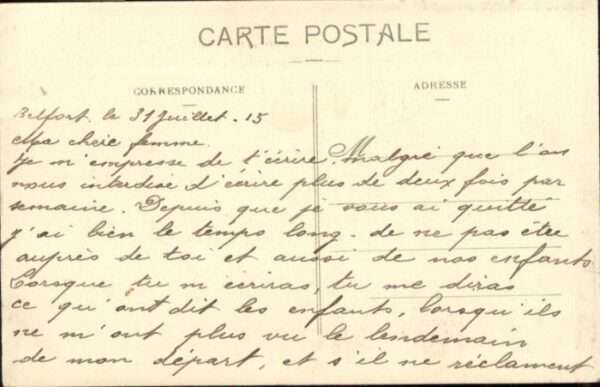 CARTE POSTALE
CORRESPONDANCE
ADRESSE
Belfort. le 31 Juillet. 15
Ma chère femme.
Je m'empresse de t'écrire. Malgré que l'on
nous interdise d'écrire plus de deux fois par
semaine. Depuis que je vous ai quitté
j'ai bien le temps long. de ne pas être
auprès de toi et aussi de nos enfants
Lorsque tu m'écriras, tu me diras
ce qu'ont dit les enfants, lorsqu'ils
ne m'ont plus vu le lendemain
de mon départ, et s'il ne réclament